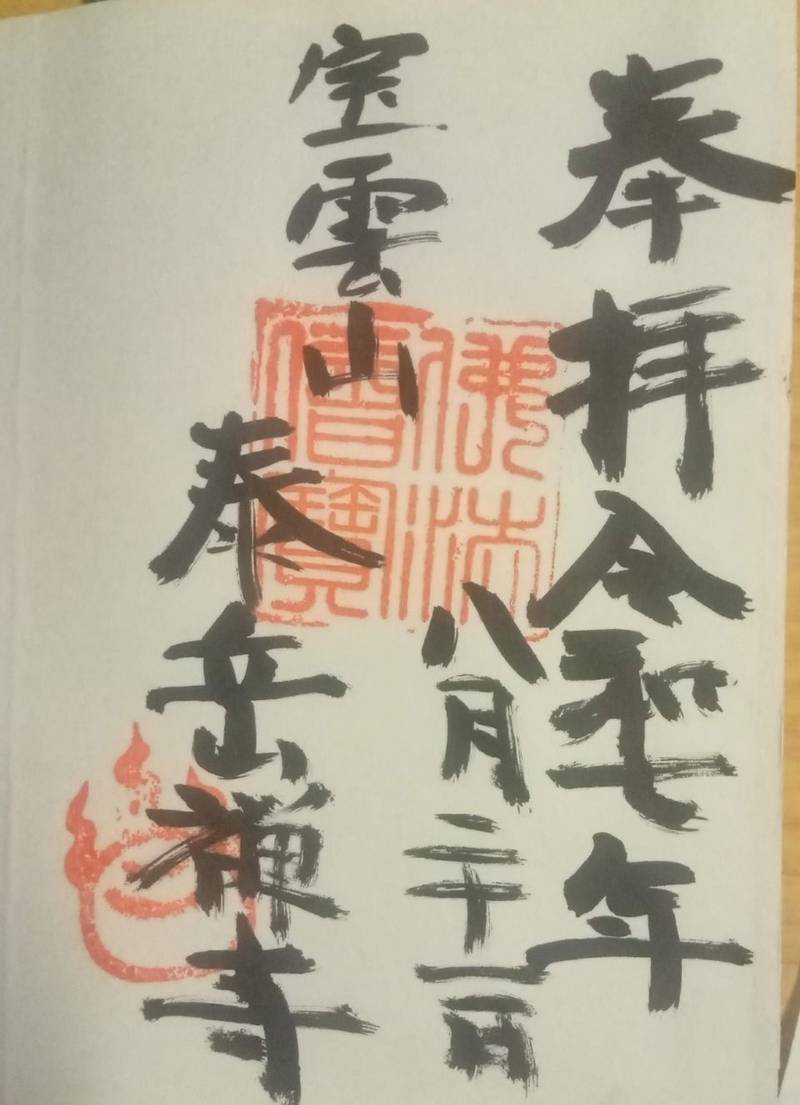 奉拝令和七年
八月二十一日
佛法
僧寶
宝雲山
泰岳禅寺